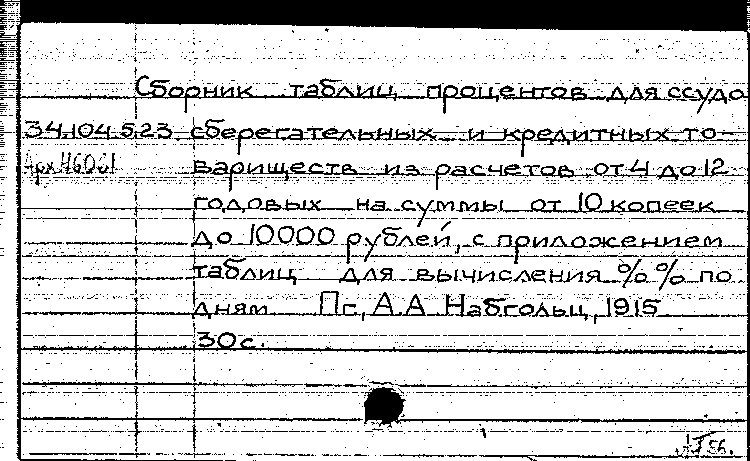 Сборник таблиц процентов для ссудо
34.104.5.23 сберегательных и кредитных то-
Арх46061 вариществ из расчетов от 4 до 12
годовых на суммы от 10 копеек
до 10000 рублей, с приложением
таблиц для вычисления %% по
дням Пг, А.А Набгольц, 1915
30с.
56.